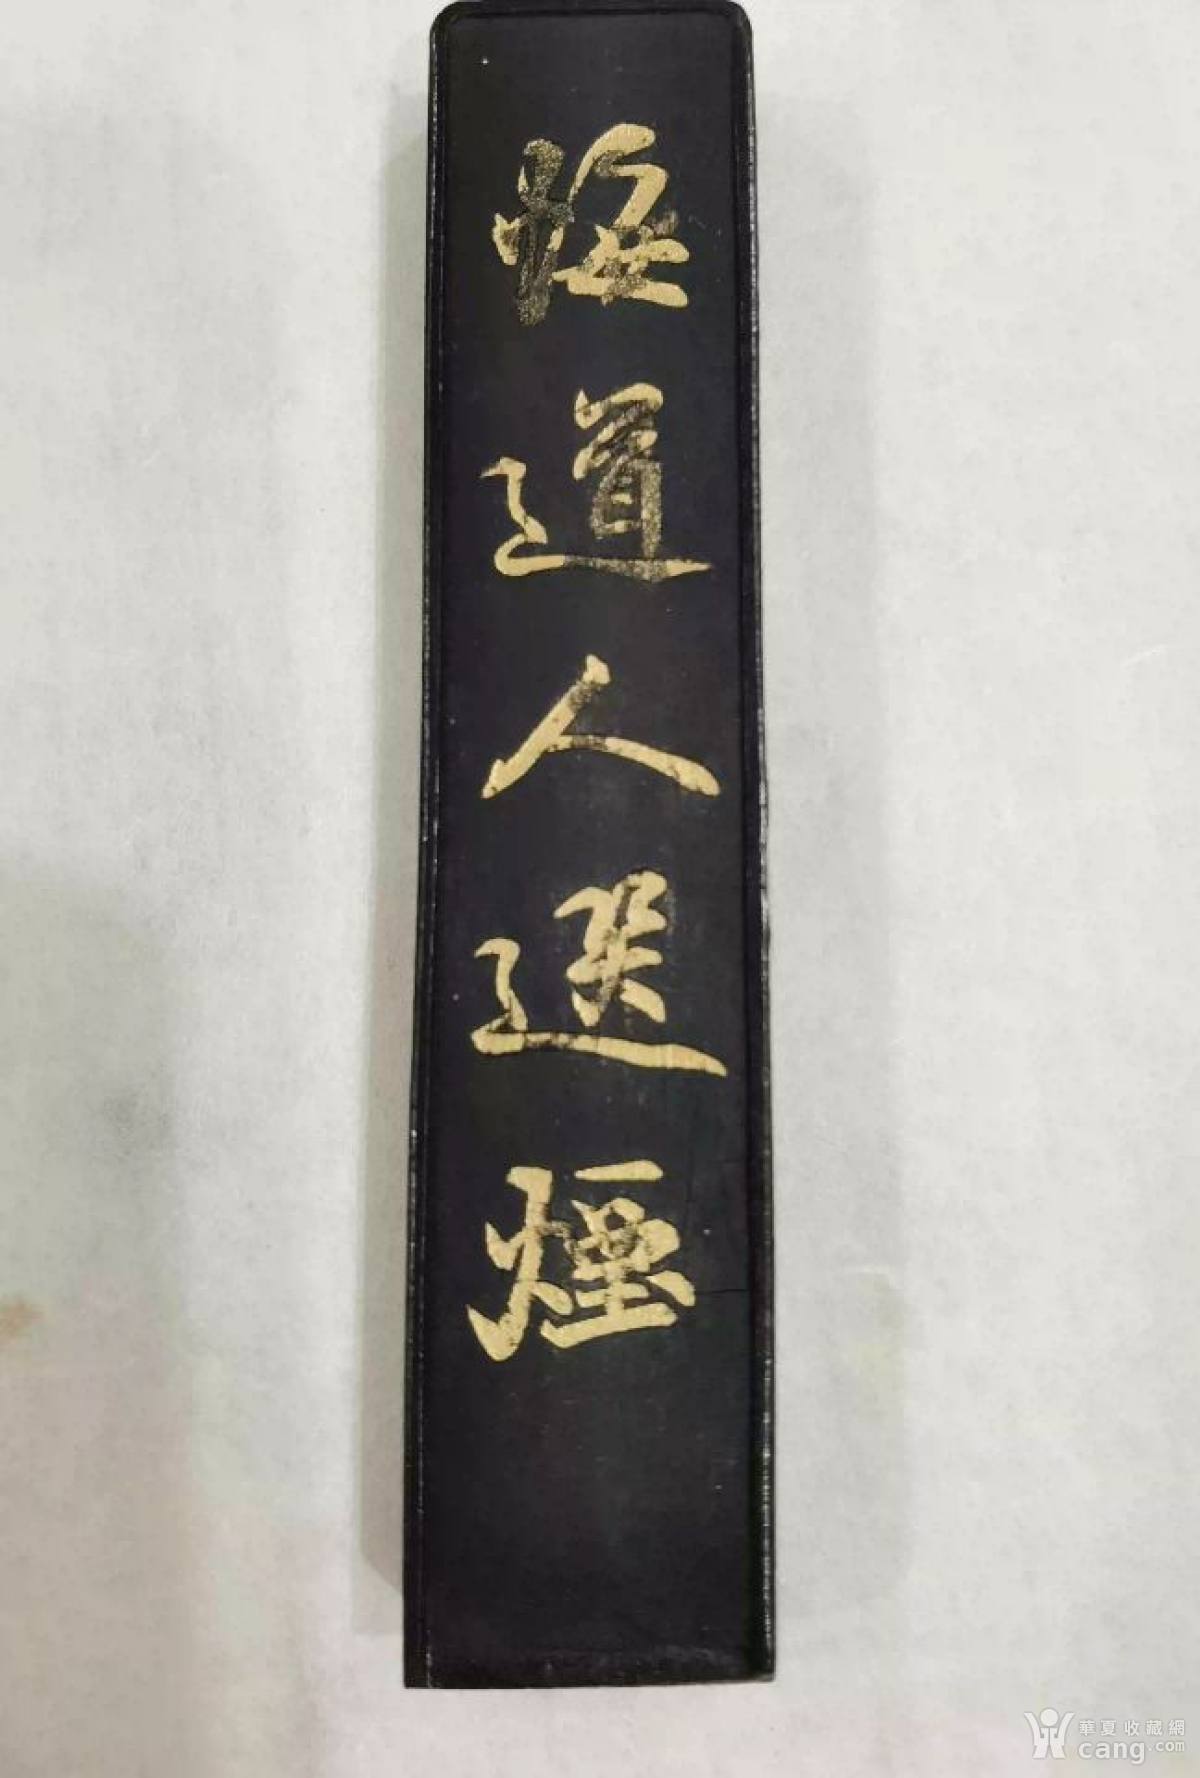 悔道人選煙
華夏收藏網
cang.com